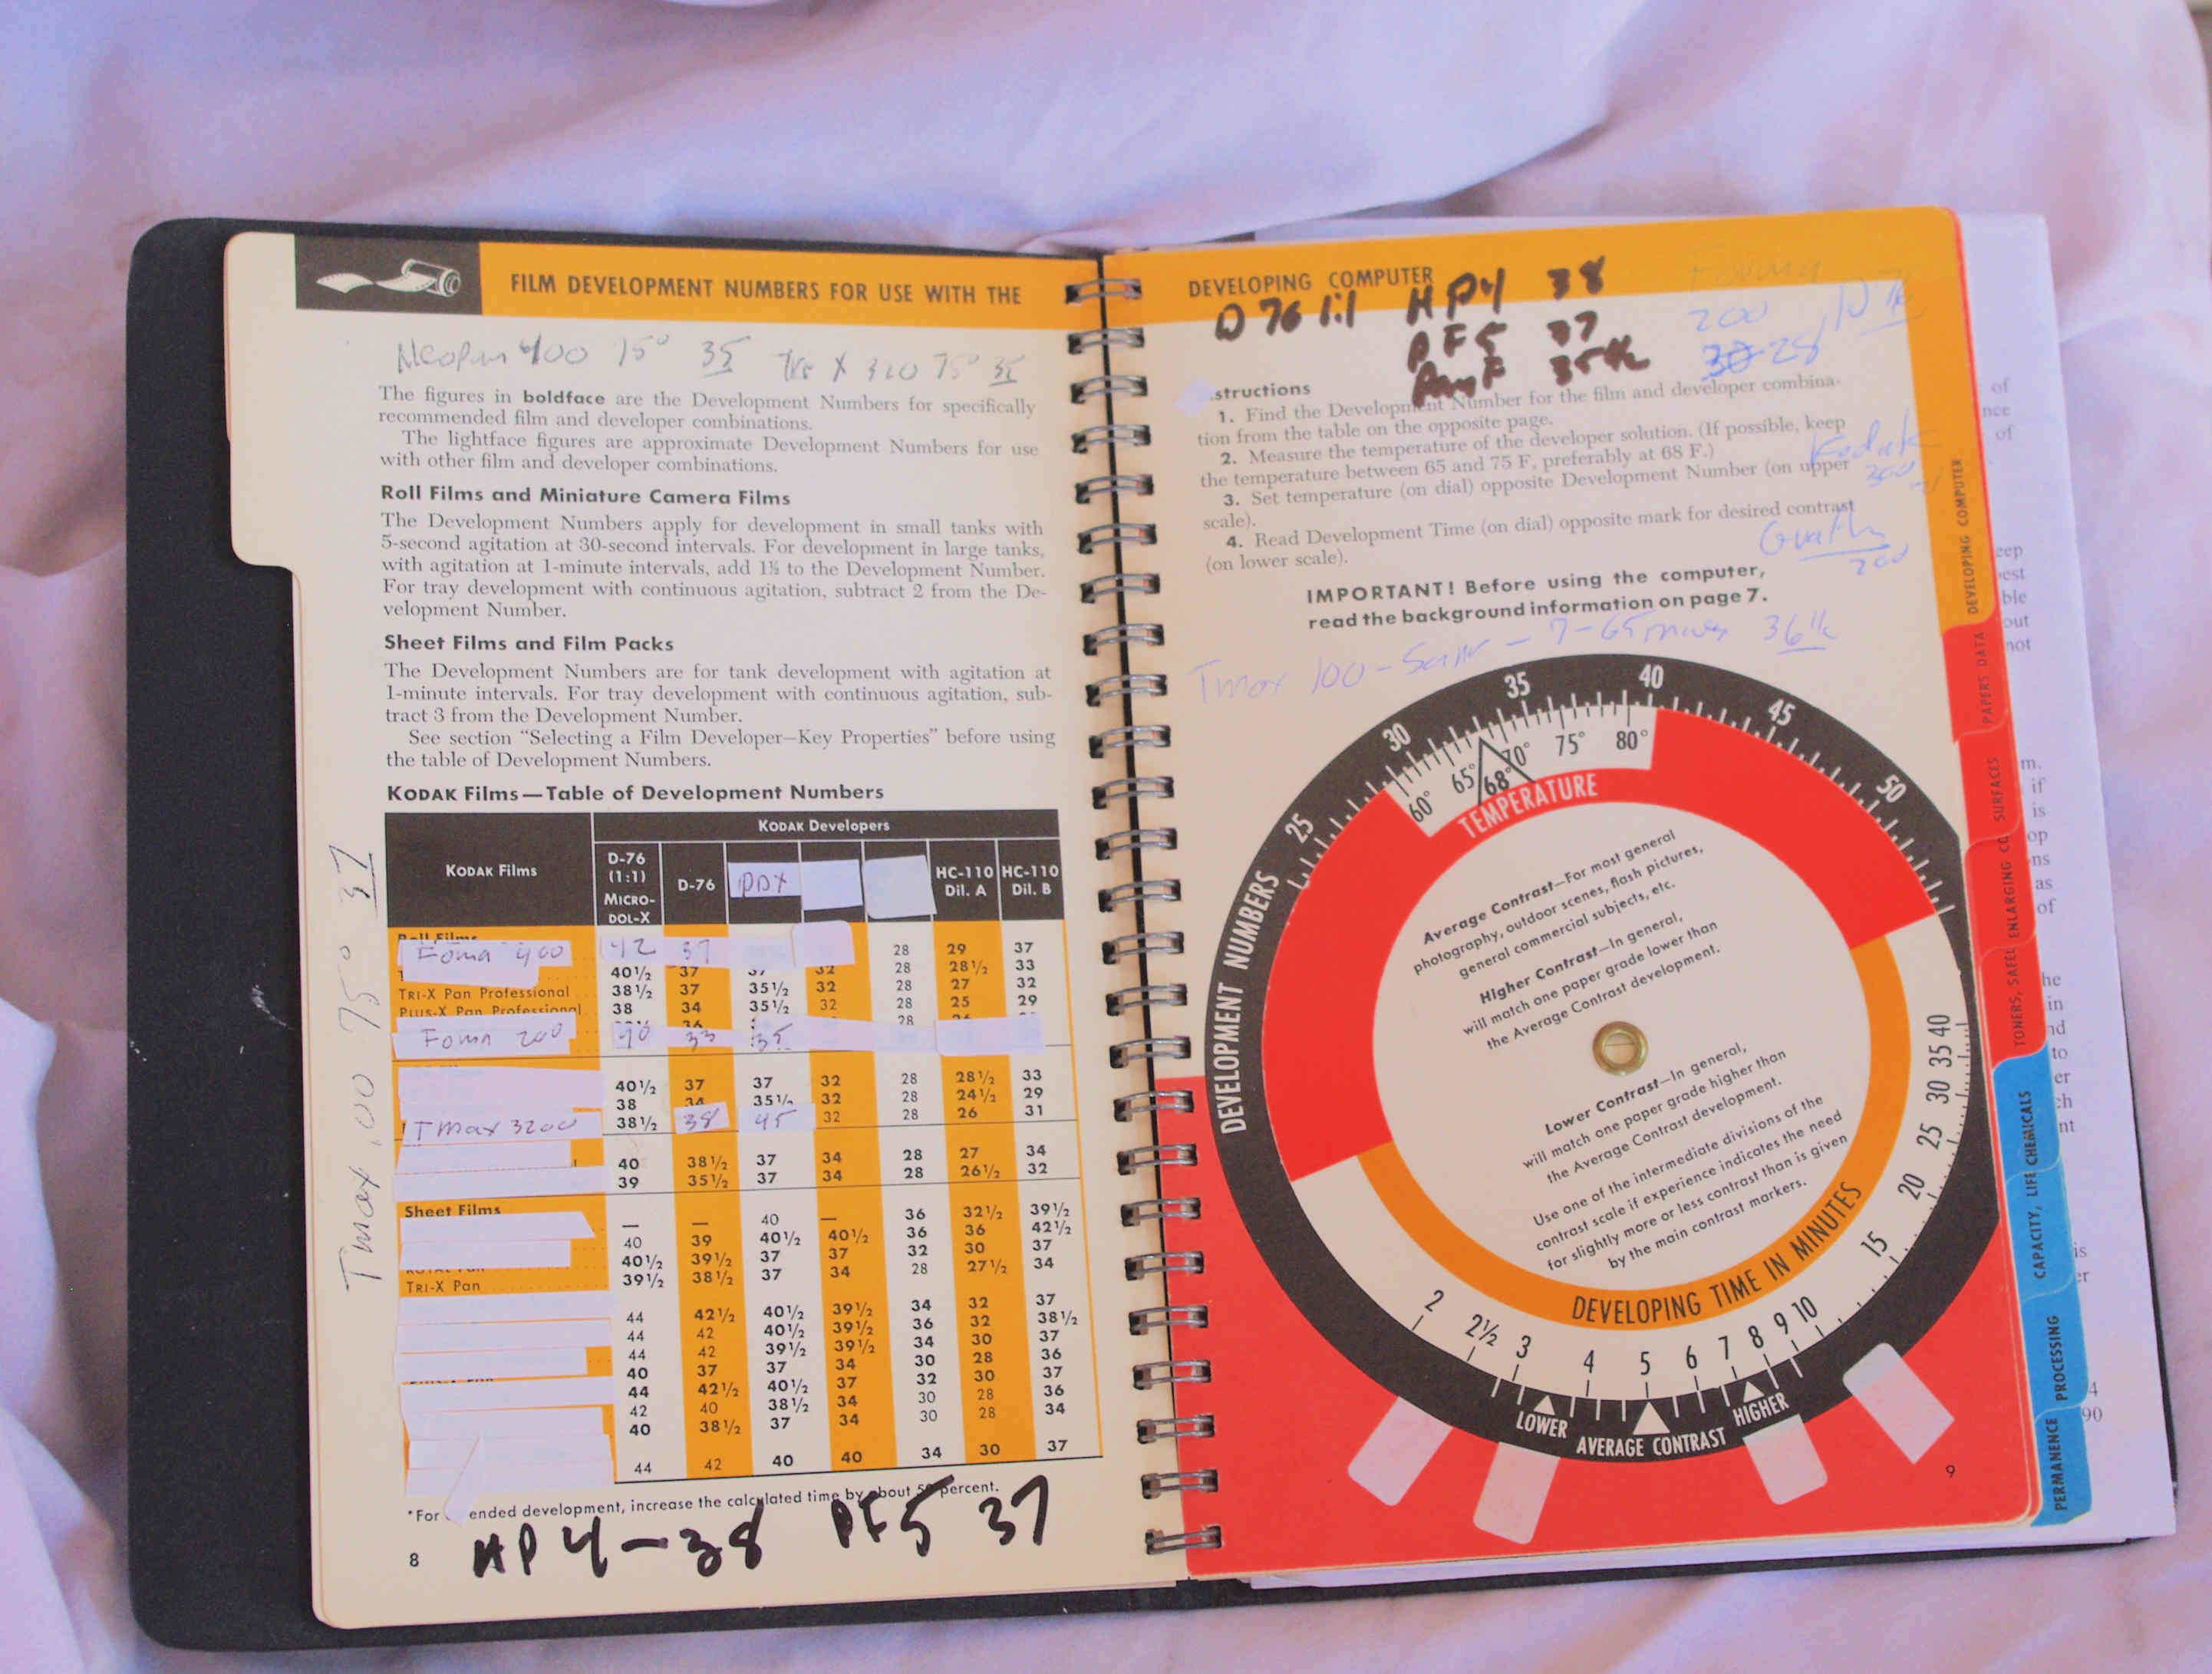 FILM DEVELOPMENT NUMBERS FOR USE WITH THE
400 75° 35 X 320 75° 35
The figures in boldface are the Development Numbers for specifically
recommended film and developer combinations.
The lightface figures are approximate Development Numbers for use
with other film and developer combinations.
Roll Films and Miniature Camera Films
The Development Numbers apply for development in small tanks with
5-second agitation at 30-second intervals. For development in large tanks,
with agitation at 1-minute intervals, add 1½ to the Development Number.
For tray development with continuous agitation, subtract 2 from the De-
velopment Number.
Sheet Films and Film Packs
The Development Numbers are for tank development with agitation at
1-minute intervals. For tray development with continuous agitation, sub-
tract 3 from the Development Number.
See section “Selecting a Film Developer—Key Properties” before using
the table of Development Numbers.
KODAK Films—Table of Development Numbers
KODAK Films
KODAK Developers
D-76 (1:1) MICRO-DOL-X
D-76
DDX
HC-110 Dil. A
HC-110 Dil. B
Roll Films
Foma 400 42 37 28 29 37
40½ 37 37 32 28 28½ 33
TRI-X Pan Professional 38½ 37 35½ 32 28 27 32
PLUS-X Pan Professional 38 34 35½ 32 28 25 29
28
Foma 200 40 33 35
40½ 37 37 32 28 28½ 33
38 34 35½ 32 28 24½ 29
TMax 3200 38½ 38 45 32 28 26 31
40 38½ 37 34 28 27 34
39 35½ 37 34 28 26½ 32
Sheet Films
— — 40 — 36 32½ 39½
40 39 40½ 40½ 36 36 42½
40½ 39½ 37 37 32 30 37
TRI-X Pan 39½ 38½ 37 34 28 27½ 34
44 42½ 40½ 39½ 34 32 37
44 42 40½ 39½ 36 32 38½
44 42 39½ 39½ 34 30 37
40 37 37 34 30 28 36
44 42½ 40½ 37 32 30 37
42 40 38½ 34 30 28 36
40 38½ 37 34 30 28 34
44 42 40 40 34 30 37
*For ended development, increase the calculated time by about 50 percent.
HP4-38 PF5 37
8
Tmax 75° 37
DEVELOPING COMPUTER
D 76 1:1 HP4 38
PF5 37
PanF 35½
200
30 28
structions
1. Find the Development Number for the film and developer combina-
tion from the table on the opposite page.
2. Measure the temperature of the developer solution. (If possible, keep
the temperature between 65 and 75 F, preferably at 68 F.)
3. Set temperature (on dial) opposite Development Number (on upper
scale).
4. Read Development Time (on dial) opposite mark for desired contrast
(on lower scale).
Kodak
200
IMPORTANT! Before using the computer,
read the background information on page 7.
Tmax 100
DEVELOPMENT NUMBERS
25 30 35 40 45 50
60° 65° 68° 70° 75° 80°
TEMPERATURE
Average Contrast—For most general
photography, outdoor scenes, flash pictures,
general commercial subjects, etc.
Higher Contrast—In general,
will match one paper grade lower than
the Average Contrast development.
Lower Contrast—In general,
will match one paper grade higher than
the Average Contrast development.
Use one of the intermediate divisions of the
contrast scale if experience indicates the need
for slightly more or less contrast than is given
by the main contrast markers.
DEVELOPING TIME IN MINUTES
2 2½ 3 4 5 6 7 8 9 10 15 20 25 30 35 40
LOWER
AVERAGE CONTRAST
HIGHER
9
DEVELOPING COMPUTER
PAPERS DATA
ENLARGING SURFACES
TONERS,
CAPACITY, LIFE CHEMICALS
PERMANENCE PROCESSING